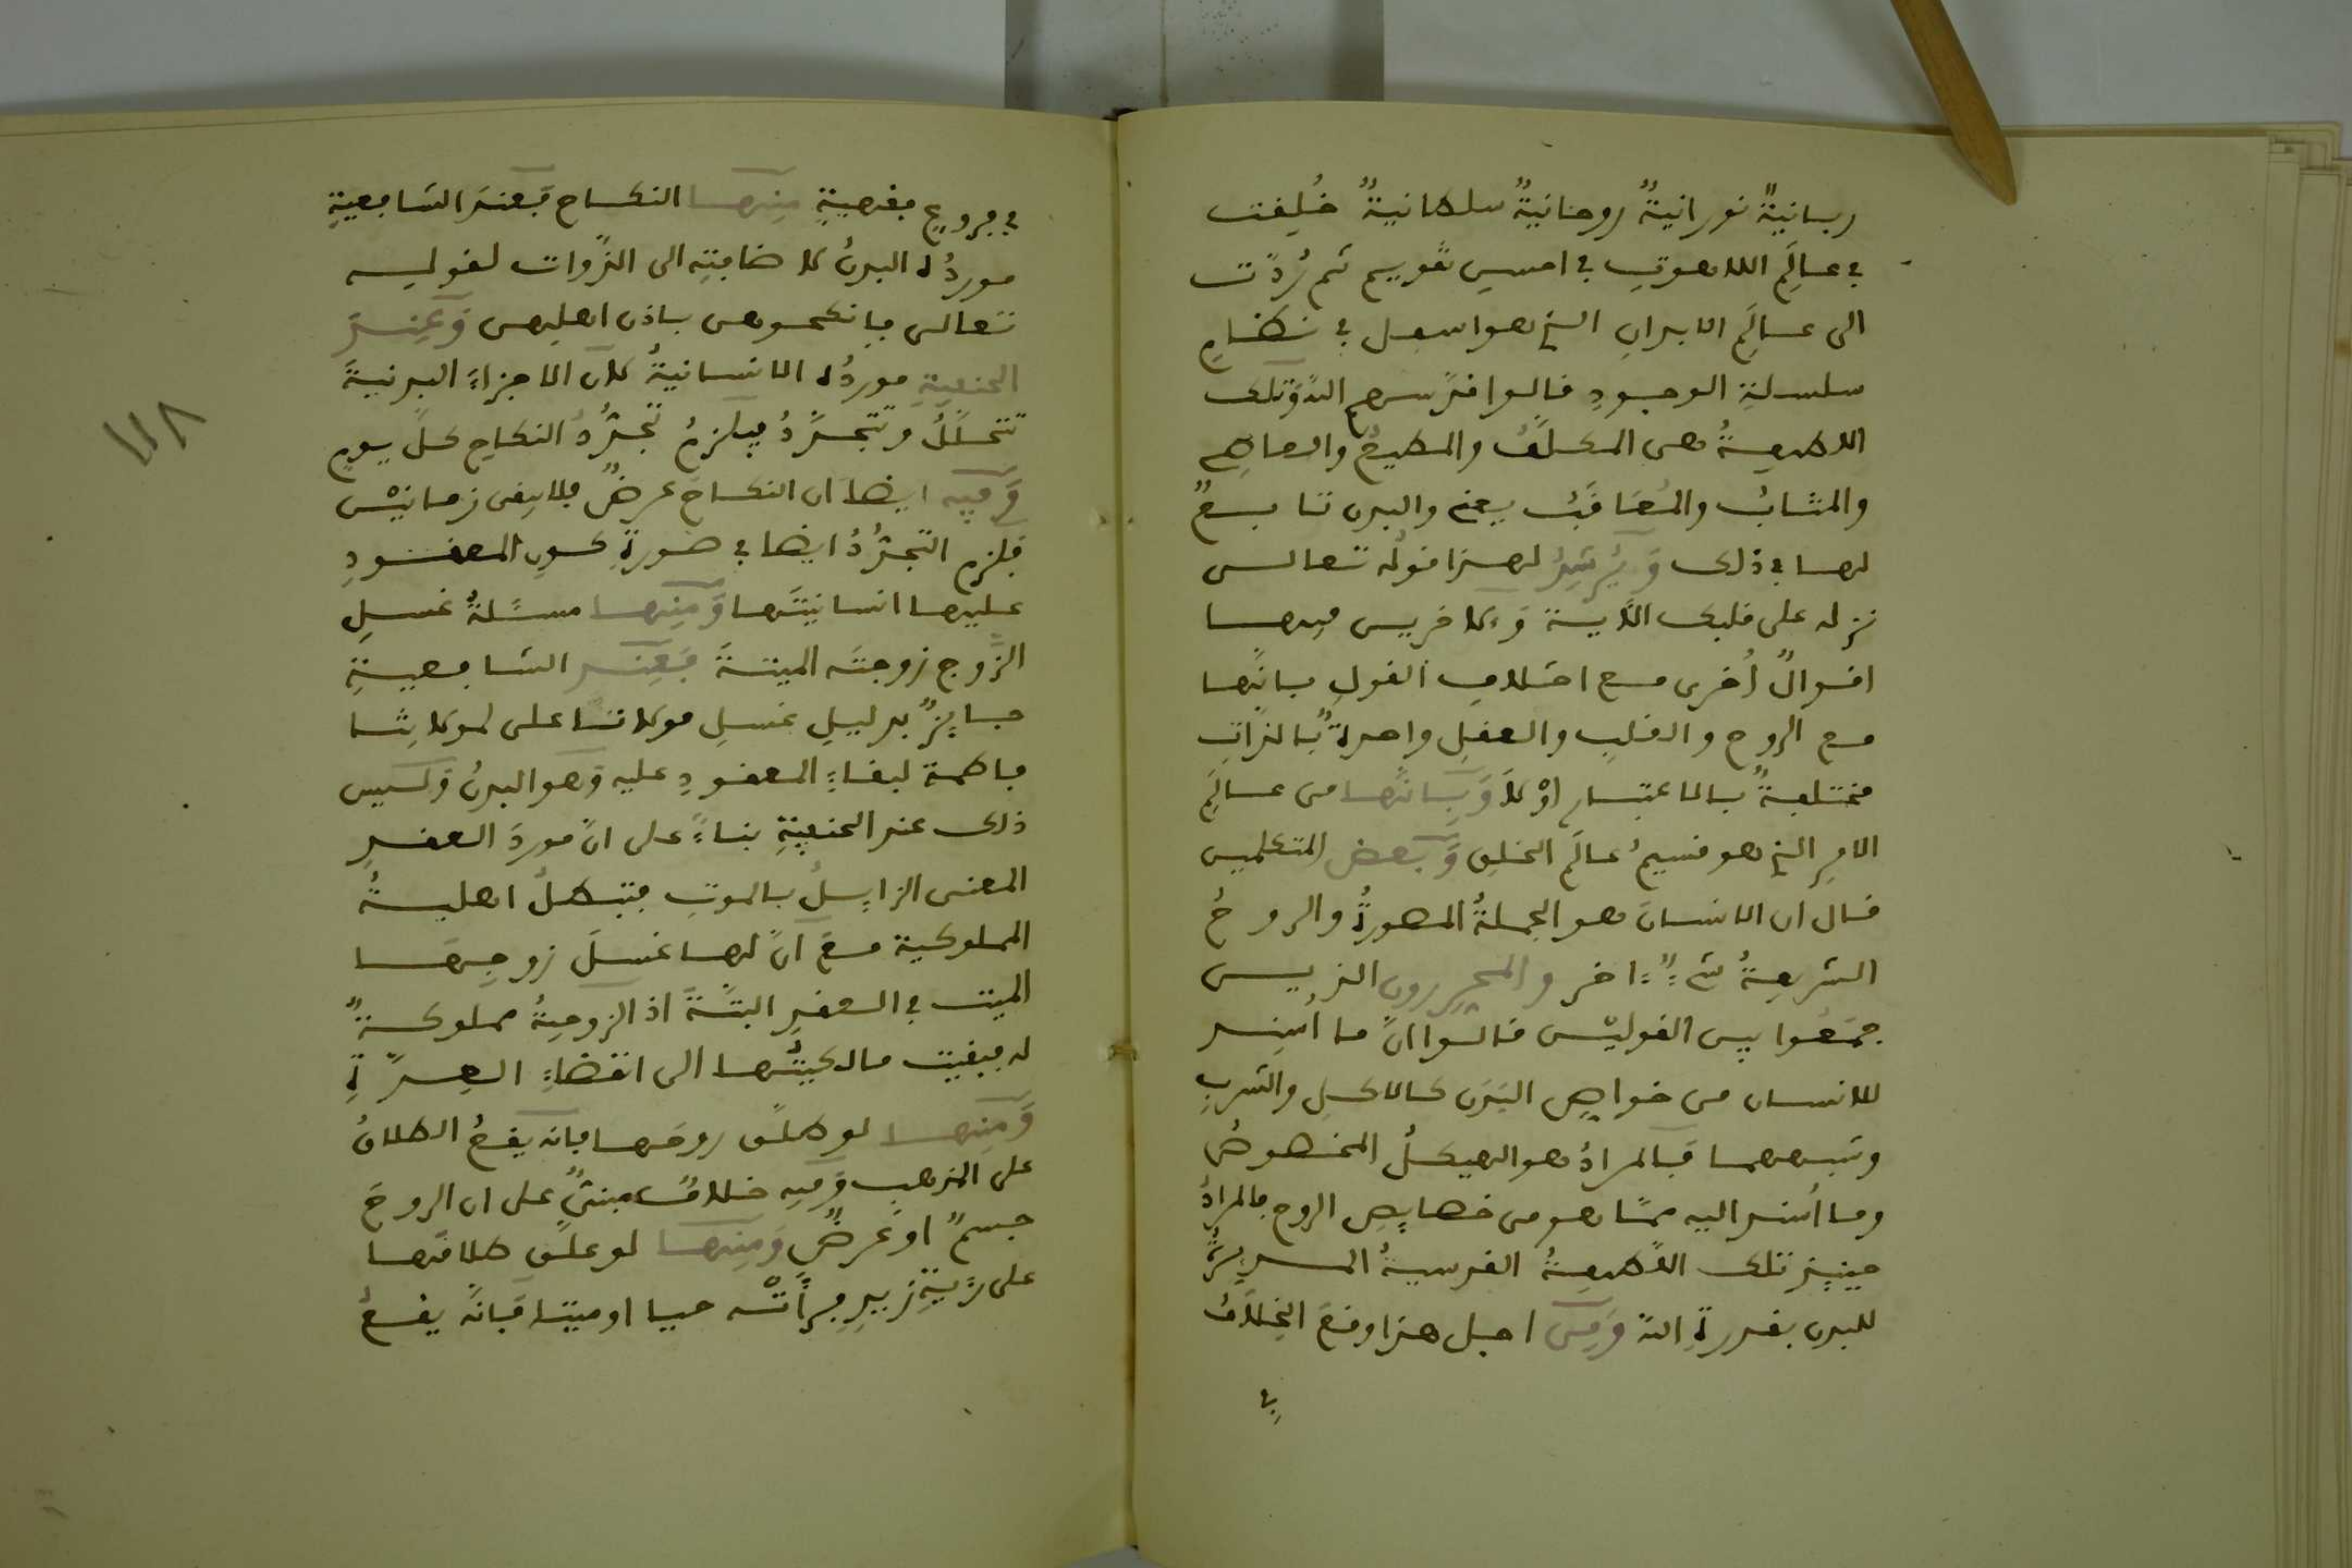 ربانيةٌ نورانيةٌ روحانيةٌ سلطانيةٌ خُلِقت
في عالَمِ اللاهوتِ في احسنِ تقويم ثم رُدّت
الى عالَمِ الابدانِ الذي هو اسفل في نظامِ
سلسلةِ الوجودِ قالوا قدّس سرهم
اللطيفةُ هي المكلَّفُ والمطيعُ والعاصِي
والمثابُ والمُعَاقَبُ يعني والبدن تابعٌ
لها في ذلك وَيُرشِدُ لهذا قولُه تعالى
نزله على قلبك الآية وَلآخرين فيها
اقوالٌ أُخرى مع اختلافِ القولِ بانّها
مع الروح والقلبِ والعقلِ واحدةٌ بالذّاتِ
مختلفةٌ بالاعتبار اوْ لاَ وَبِانّها من عالَمِ
الامرِ الذي هو قسيمُ عالَمِ الخلقِ وَبَعضُ المتكلمين
قال ان الانسانَ هو الجملةُ المصورةُ والروحُ
الشريفةُ شيءٌ اخر والمحررون الذين
جمَعُوا بين القوليْن قالوا انّ ما اُسنِد
للانسان من خواصِ البَدَن كالاكلِ والشربِ
وشبههما فَالمرادُ هو الهيكلُ المخصوصُ
وما اُسند اليه ممّا هو من خصايصِ الروح فالمرادُ
حينيذٍ تلك اللّطيفةُ القدسيةُ المدبرةُ
للبدن بقدرةِ الله وَمِن اجل هذا وقعَ الخِلاَفُ
في
في فروعٍ فقهيةٍ مِنها النكاح فَعندَ الشافعيةِ
موردُه البدنُ لاضافتِه الى الذّوات لقوله
تعالى فانكحوهن باذن اهلِهن وَعِندَ
الحنفيةِ موردُه الانسانيةُ لان الاجزاءَ البدنيةَ
تتحلّلُ وتتجدَّدُ فيلزمُ تجدُّدُ النكاحِ كلّ يومٍ
وَفيه ايضا ان النكاحَ عرضٌ فلا يبقى زمانيْن
فلزم التجدُّدُ ايضا في صورةِ كونِ المعقودِ
عليها انسانيتَها وَمِنها مسئلةُ غسلِ
الزَّوج زوجتَه الميتةَ فَعِند الشافعيةِ
جايزٌ بدليلِ غسلِ مولانا على لمولاتِنا
فاطمة لبقاءِ المعقودِ عليه وَهو البدنُ وَليس
ذلك عند الحنفيةِ بناءً على انّ موردَ العقدِ
المعنى الزايلُ بالموتِ فتبطلُ اهليةُ
المملوكية معَ انّ لها غسلَ زوجِها
الميت في العقدِ البتّةَ اذ الزوجيةُ مملوكةٌ
له فبقيت مالكيتُها الى انقضاءِ العِدّةِ
وَمِنها لو طلّق روحَها فانه يقعُ الطلاقُ
على المذهبِ وَفيه خلافٌ مبنيٌّ على ان الروحَ
جسمٌ او عَرضٌ وَمِنها لو علّق طلاقَها
على رؤيةِ زيدٍ فرأتْه حيا او ميتا فَانّه يقعُ
١١٨